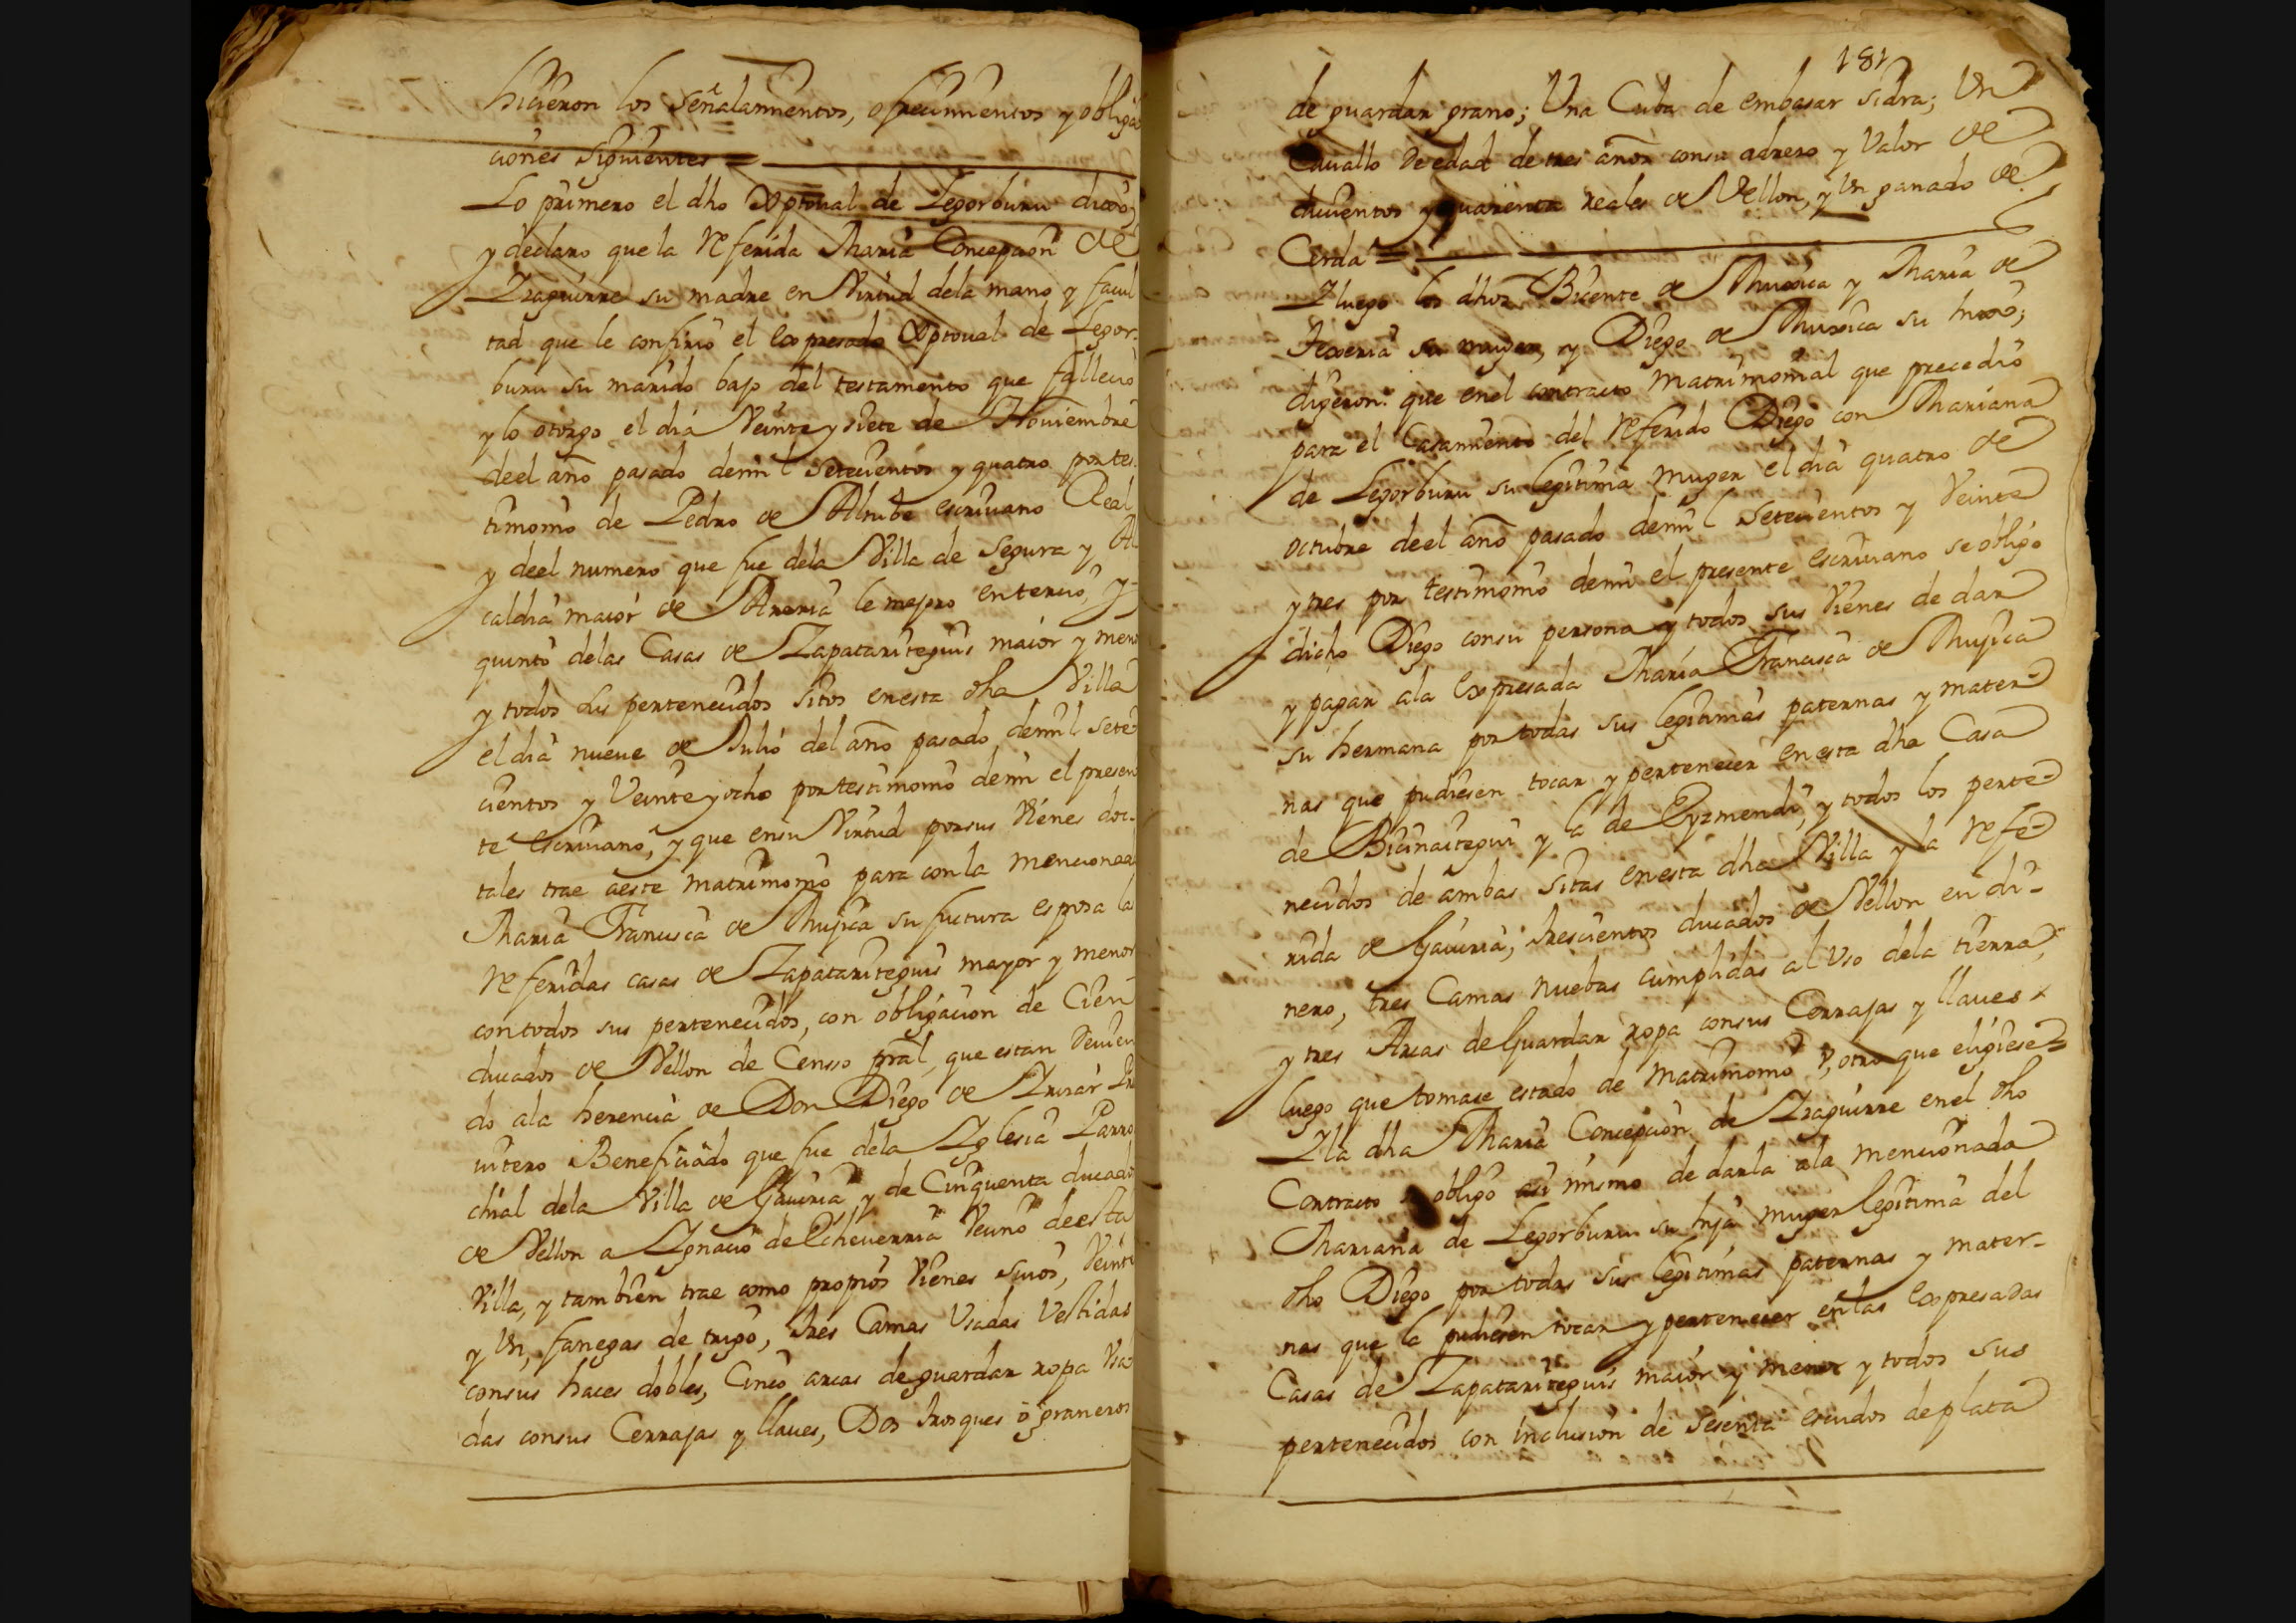 hicieron los Señalamientos, ofrecimientos y obliga
ciones siguientes =
Lo primero el dho Xptoual de Legorburu dixo,
y declaro que la referida Maria Concepcion de
Yraguirre su madre en Virtud dela mano y facul
tad que le confirio el expresado Xptoual de Legor-
buru su marido bajo del testamento que fallecio
y lo otorgo el dia Veinte y siete de Nouiembre
deel año pasado demil setecientos y quatro por tes-
timonio de Pedro de escriuano Real
y deel numero que fue dela Villa de Segura y Al-
caldia maior de Areria le mejoro en tercio, y
quinto delas Casas de Zapataritegui maior y meno
y todos sus pertenecidos sitos en esta dha Villa
el dia nueue de Julio del año pasado demil sete
cientos y Veinte y ocho por testimonio demi el presen
te escriuano, y que en su Virtud por sus Vienes doc-
tales trae a este matrimonio para con la mencionada
Maria Francisca de Mujica su futura esposa las
referidas casas de Zapataritegui mayor y menor
con todos sus pertenecidos, con obligacion de Cien
ducados de Vellon de Censso pral, que estan deuien
do ala herencia de Don Diego de Pres
uitero Beneficiado que fue dela Yglesia Parro
chial dela Villa de Gauiria y de Cinquenta ducados
de Vellon a Ygnacio de Echeuerria Vecino de esta
Villa, y tambien trae como propios Vienes suios, Veinte
y Un, fanegas de trigo, tres Camas Usadas Vestidas
consus haces dobles, Cinco arcas de guardar ropa Vsa
das consus Cerrajas y llaues, Dos troxques o graneros
181
de guardar grano; Una Cuba de embasar sidra; Un
Cauallo de edad de tres años consu adrezo y Valor de
ducientos y quarenta reales de Vellon, y Un ganado de
Cerda =
Y luego los dhos Bicente de Muxica y Maria de
su muger, y Diego de Muxica su hixo;
digeron: que enel contracto Matrimonial que precedio
para el Casamiento del referido Diego con Mariana
de Legorburu su legitima muger el dia quatro de
octubre deel año pasado demil setecientos y Veinte
y tres por testimonio demi el presente escriuano se obligo
dicho Diego consu persona y todos sus Vienes de dar
y pagar ala expresada Maria Francisca de Mujica
su hermana por todas sus legitimas paternas y mater-
nas que pudiesen tocar y pertenecer en esta dha Casa
de Bicinaitegui y la de Eyzmendi, y todos los perte-
necidos de ambas sitas en esta dha Villa y la refe-
rida de Gauiria; trescientos ducados de Vellon en di-
nero, tres Camas nuebas cumplidas al Vso dela tierra,
y tres Arcas de Guardar ropa consus Cerrajas y llaues
luego que tomase estado de matrimonio V, otro que eligiese
Y la dha Maria Concepcion de Yraguirre enel dho
Contracto se obligo asi mismo de darla ala mencionada
Mariana de Legorburu su hija muger legitima del
dho Diego por todas sus legitimas paternas y mater-
nas que la pudiesen tocar y pertenecer en las expresadas
Casas de Zapataritegui maior y menor y todos sus
pertenecidos con inclusion de sesenta escudos de plata